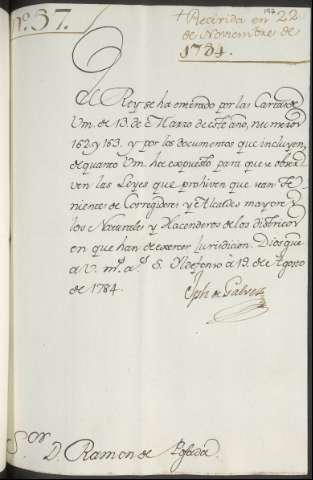 nº. 37.
+ Recivida en 22
de Noviembre de
1784.
El Rey se ha enterado por las Cartas de
Vm. de 13. de Marzo de este año, numeros
162 y 163. y por los documentos que incluyen,
de quanto Vm. ha expuesto para que se obser-
ven las Leyes que prohiven que sean Te-
nientes de Corregidores y Alcaldes mayores
los Naturales y Hacenderos de los distritos
en que han de exercer Jurisdicion. Dios gue.
a V. m.s a.s S. Ildefonso à 19. de Agosto
de 1784.
Jph de Galvez
S.or D. Ramon de Posada.